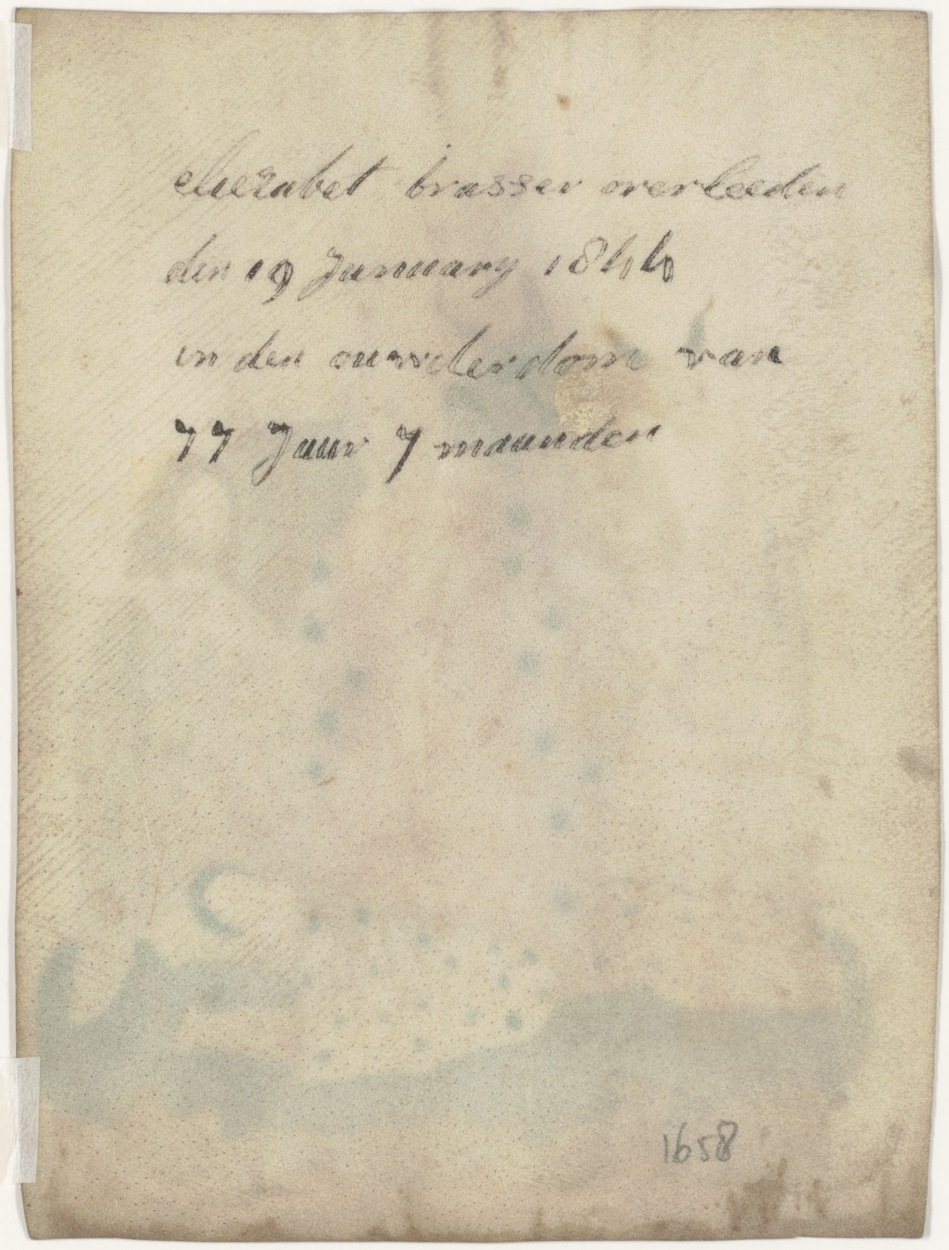 eliezabet brasser overleeden
den 19 January 1844
in den ouwderdom van
77 Jaar 7 maanden
1658